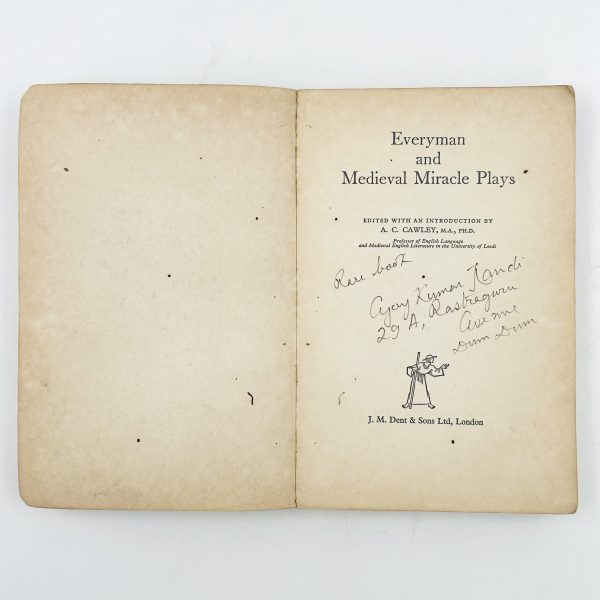 Everyman
and
Medieval Miracle Plays
EDITED WITH AN INTRODUCTION BY
A. C. CAWLEY, M.A., PH.D.
Professor of English Language
and Medieval English Literature in the University of Leeds
Rare book
Ajay Kumar Nandi
29 A, Rastraguru
Avenue
Dum Dum
J. M. Dent & Sons Ltd, London